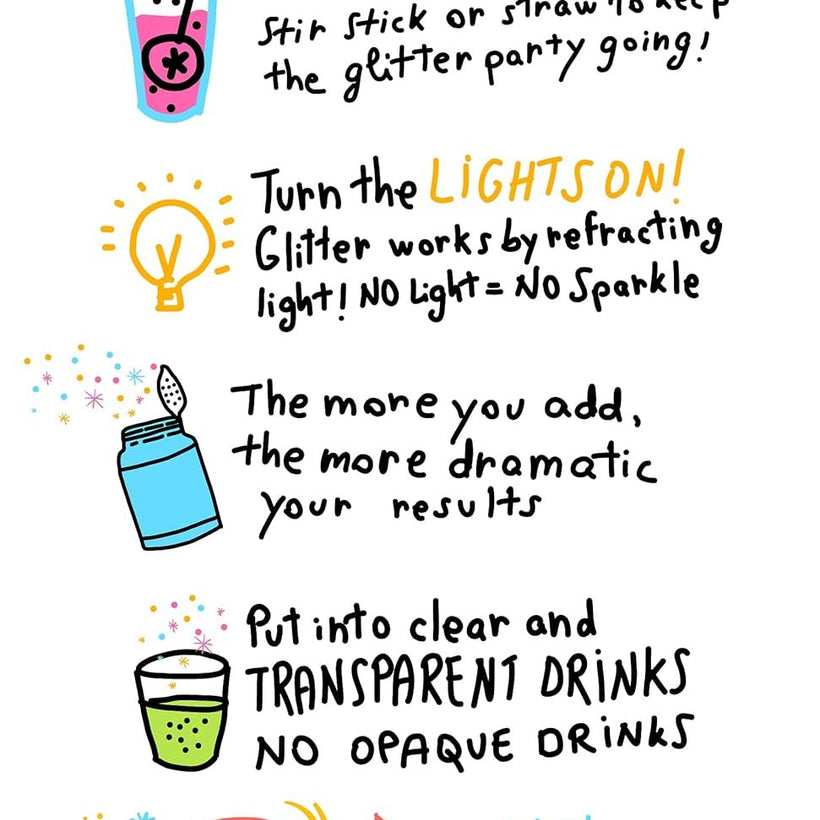 stir stick or straw to keep
the glitter party going!
Turn the LIGHTS ON!
Glitter works by refracting
light! NO Light = NO Sparkle
The more you add,
the more dramatic
your results
Put into clear and
TRANSPARENT DRINKS
NO OPAQUE DRINKS